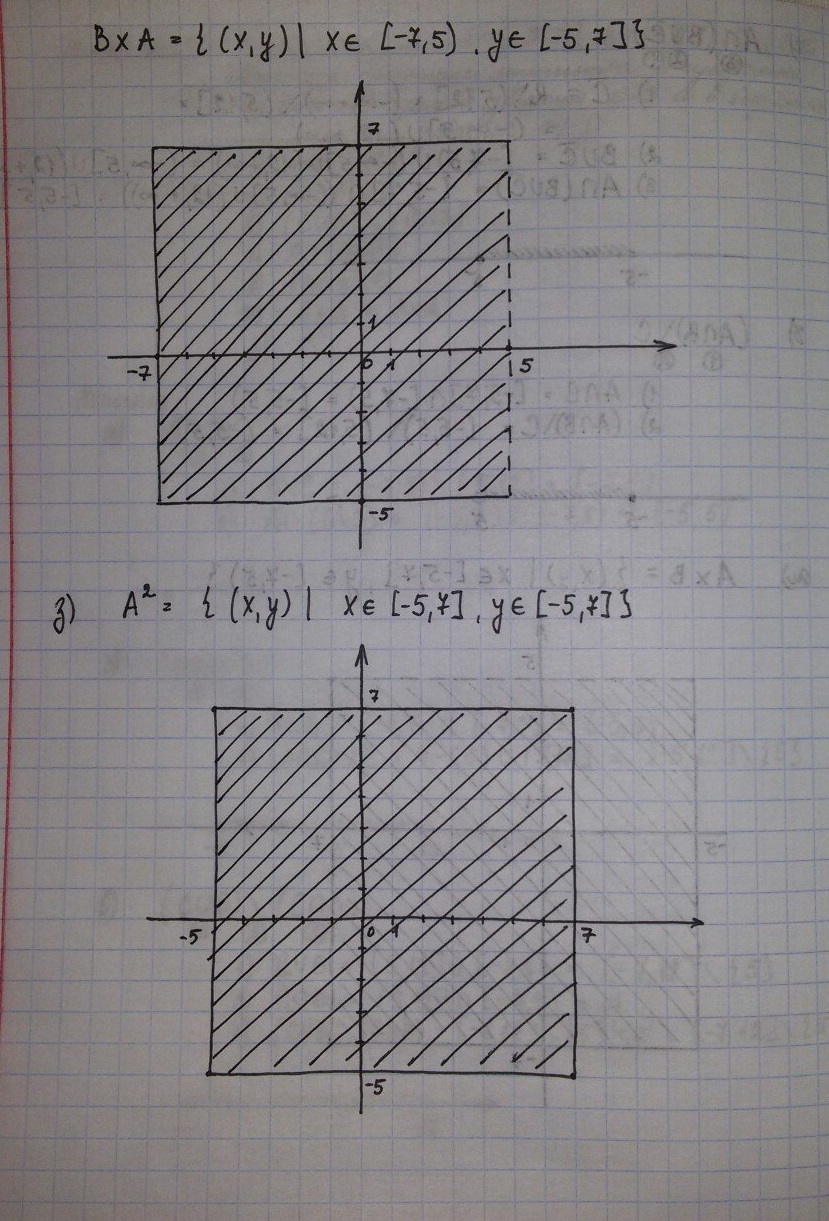 B x A = { (x,y) | x ∈ [-7,5) , y ∈ [-5,7] }
7
1
-7 0 1 5
-5
з) A² = { (x,y) | x ∈ [-5,7] , y ∈ [-5,7] }
7
-5 0 1 7
-5